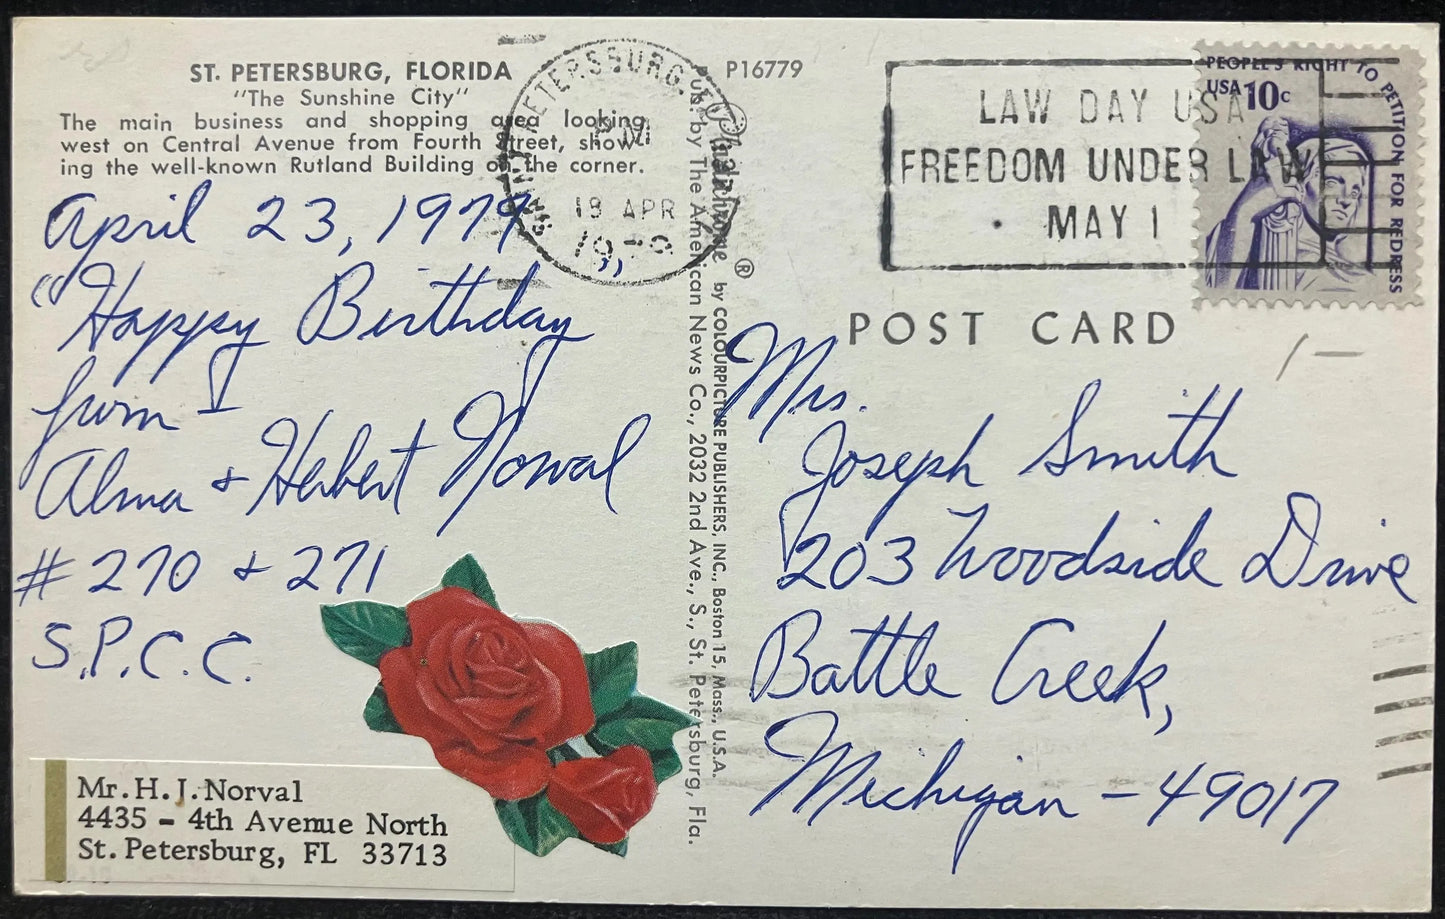 ST. PETERSBURG, FLORIDA
"The Sunshine City"
The main business and shopping area looking
west on Central Avenue from Fourth Street, show-
ing the well-known Rutland Building on the corner.
April 23, 1979
"Happy Birthday
from -
Alma + Herbert Norval
# 270 + 271
S.P.C.C.
Mr. H. J. Norval
4435 - 4th Avenue North
St. Petersburg, FL 33713
PETERSBURG,
PM
18 APR
197
P16779
Plastichrome ® by COLOURPICTURE PUBLISHERS, INC., Boston 15, Mass., U.S.A.
Pub. by The American News Co., 2032 2nd Ave., S., St. Petersburg, Fla.
LAW DAY USA
FREEDOM UNDER LAW
MAY 1
PEOPLE'S RIGHT TO PETITION FOR REDRESS
USA 10c
POST CARD
1 -
Mrs.
Joseph Smith
203 Woodside Drive
Battle Creek,
Michigan - 49017